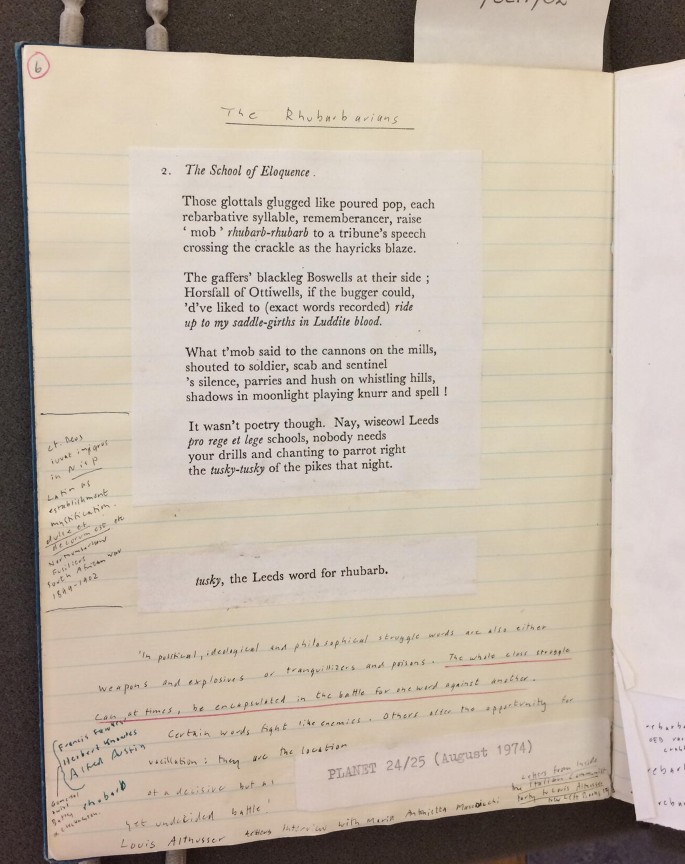 6
The Rhubarbarians
2. The School of Eloquence.
Those glottals glugged like poured pop, each
rebarbative syllable, rememberancer, raise
' mob ' rhubarb-rhubarb to a tribune's speech
crossing the crackle as the hayricks blaze.
The gaffers' blackleg Boswells at their side ;
Horsfall of Ottiwells, if the bugger could,
'd've liked to (exact words recorded) ride
up to my saddle-girths in Luddite blood.
What t'mob said to the cannons on the mills,
shouted to soldier, scab and sentinel
's silence, parries and hush on whistling hills,
shadows in moonlight playing knurr and spell !
It wasn't poetry though. Nay, wiseowl Leeds
pro rege et lege schools, nobody needs
your drills and chanting to parrot right
the tusky-tusky of the pikes that night.
cf. Deus
in N is P
Latin as
establishment
mystification.
dulce et
decorum est etc
Northumberland
Fusiliers
South African War
1899-1902
tusky, the Leeds word for rhubarb.
'In political, ideological and philosophical struggle words are also either
weapons and explosives or tranquillizers and poisons. The whole class struggle
can, at times, be encapsulated in the battle for one word against another.
Certain words fight like enemies. Others offer the opportunity for
vacillation : they are the location
of a decisive but as
yet undecided battle'
Herbert Knowles
Alfred Austin
rhubarb
PLANET 24/25 (August 1974)
Louis Althusser Interview with Maria Antonietta Macciocchi
Letters from inside
the Italian Communist
Party to Louis Althusser